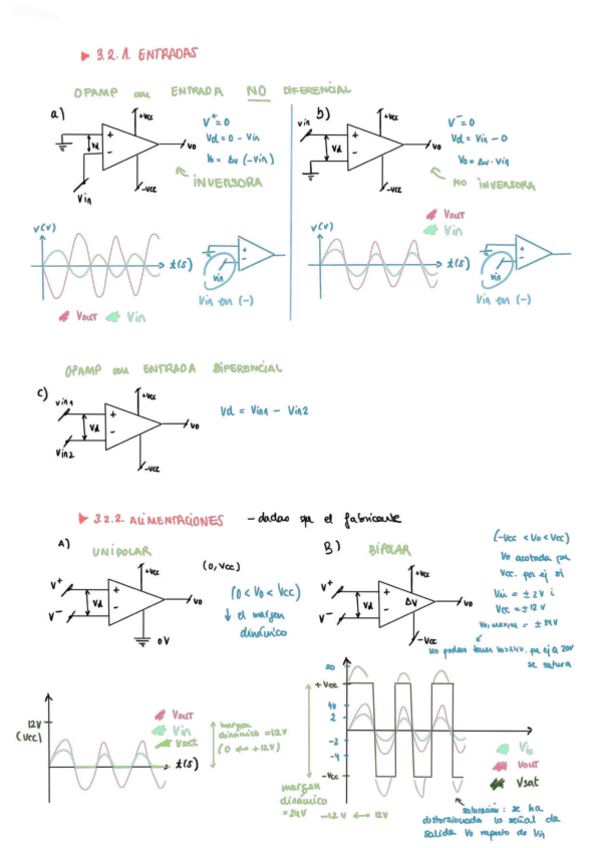 ▶ 3.2.1. ENTRADAS
OPAMP con ENTRADA NO DIFERENCIAL
a)
+Vcc
+
-
Vd
Vo
-Vcc
Vin
V⁺=0
Vd = 0 - Vin
Vo = Av (-Vin)
INVERSORA
b)
+Vcc
Vin
+
-
Vd
Vo
-Vcc
V⁻=0
Vd = Vin - 0
Vo = Av · Vin
NO INVERSORA
V(V)
t(s)
Vout
Vin
+
-
Vin
Vin en (-)
Vout
Vin
V(V)
t(s)
+
-
Vin
Vin en (-)
OPAMP con ENTRADA DIFERENCIAL
c)
+Vcc
Vin1
+
-
Vd
Vo
Vin2
-Vcc
Vd = Vin1 - Vin2
▶ 3.2.2. ALIMENTACIONES - dadas por el fabricante
A)
UNIPOLAR
(0, Vcc)
+Vcc
V⁺
V⁻
+
-
Vd
Vo
0V
(0 < Vo < Vcc)
↓ el margen
dinámico
B)
BIPOLAR
+Vcc
V⁺
V⁻
+
-
Vd
ΔV
Vo
-Vcc
(-Vcc < Vo < Vcc)
Vo acotada por
Vcc. por ej si
Vin = ± 2V i
Vcc = ± 12 V
no podem tener Vo>24V. por ej a 20V
se satura
12V
(Vcc)
Vout
Vin
Vsat
t(s)
margen
dinámico = 12V
(0 ↔ +12V)
20
+Vcc
4V
2
-2
-4
-Vcc
Vin
Vout
Vsat
margen
dinámico
= 24V -12V ↔ 12V
saturación: se ha
distorsionado la señal de
salida Vo respecto de Vin